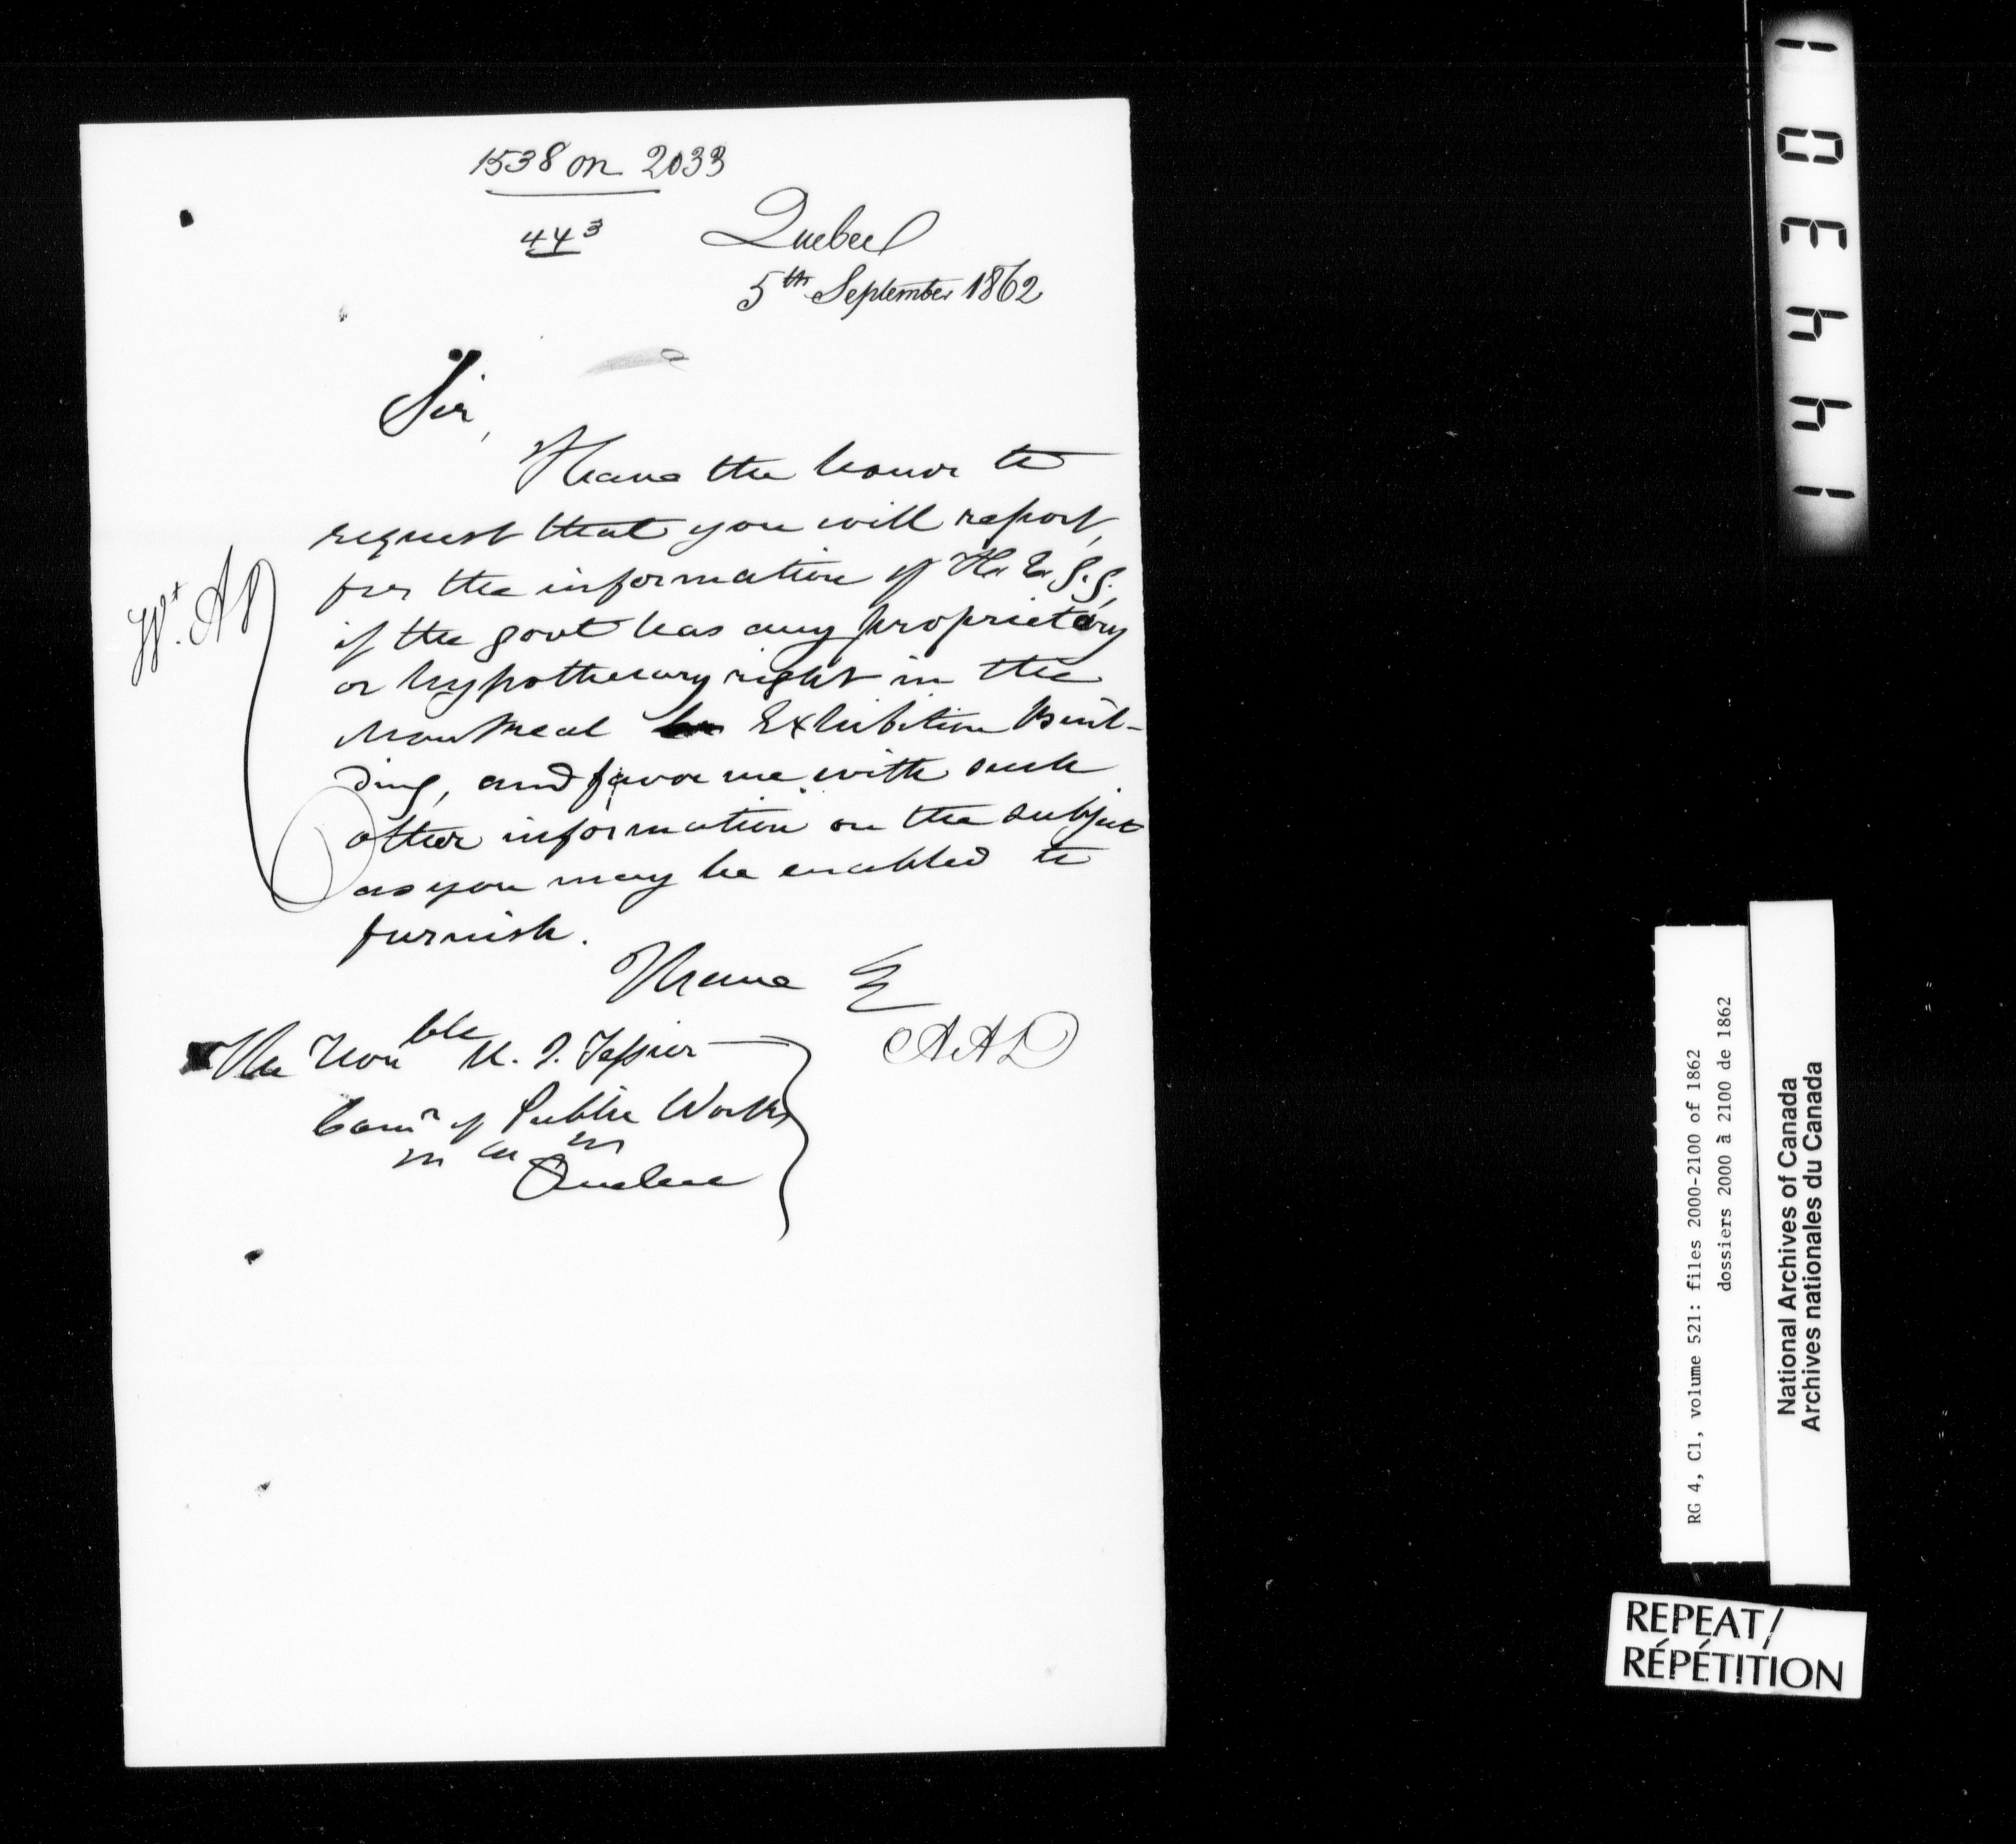 1538 on 2033
44 3
Quebec
5th September 1862
Sir,
I have the honor to
request that you will report,
for the information of H. E. G. G.,
if the govt has any proprietary
or hypothecary right in the
Montreal Exhibition Buil-
ding, and favor me with such
other information on the subject
as you may be enabled to
furnish.
I have &
AAD
The Honble U. J. Tessier
Comr of Public Works
Quebec
103441
RG 4, C1, volume 521: files 2000-2100 of 1862
dossiers 2000 à 2100 de 1862
National Archives of Canada
Archives nationales du Canada
REPEAT/
RÉPÉTITION